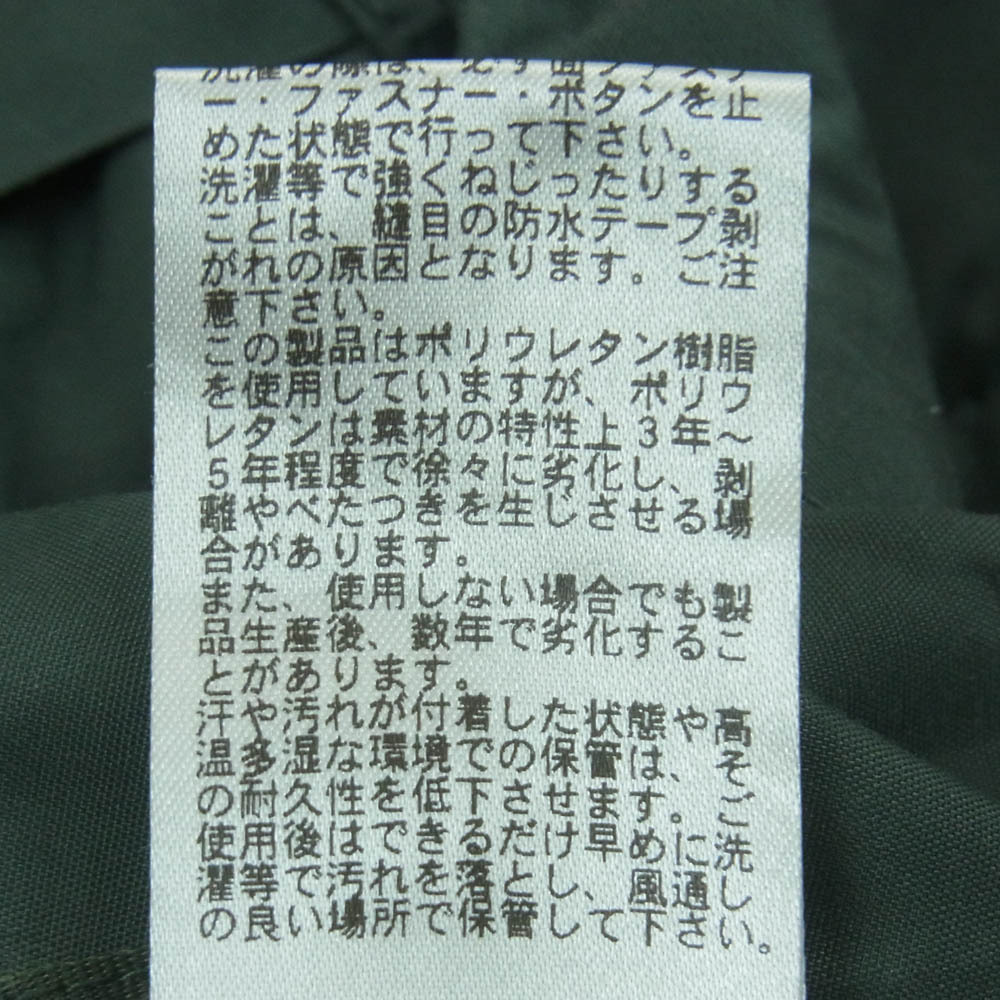 洗濯の際は、必ず面ファス
ー・ファスナー・ボタンを止
めた状態で行って下さい。
洗濯等で強くねじったりする
ことは、縫目の防水テープ剥
がれの原因となります。ご注
意下さい。
この製品はポリウレタン樹脂
を使用していますが、ポリウ
レタンは素材の特性上3年～
5年程度で徐々に劣化し、剥
離やべたつきを生じさせる場
合があります。
また、使用しない場合でも製
品生産後、数年で劣化するこ
とがあります。
汗や汚れが付着した状態や高
温多湿な環境での保管は、そ
の耐久性を低下させます。ご
使用後はできるだけ早めに洗
濯等で汚れを落とし、風通し
の良い場所で保管して下さい。